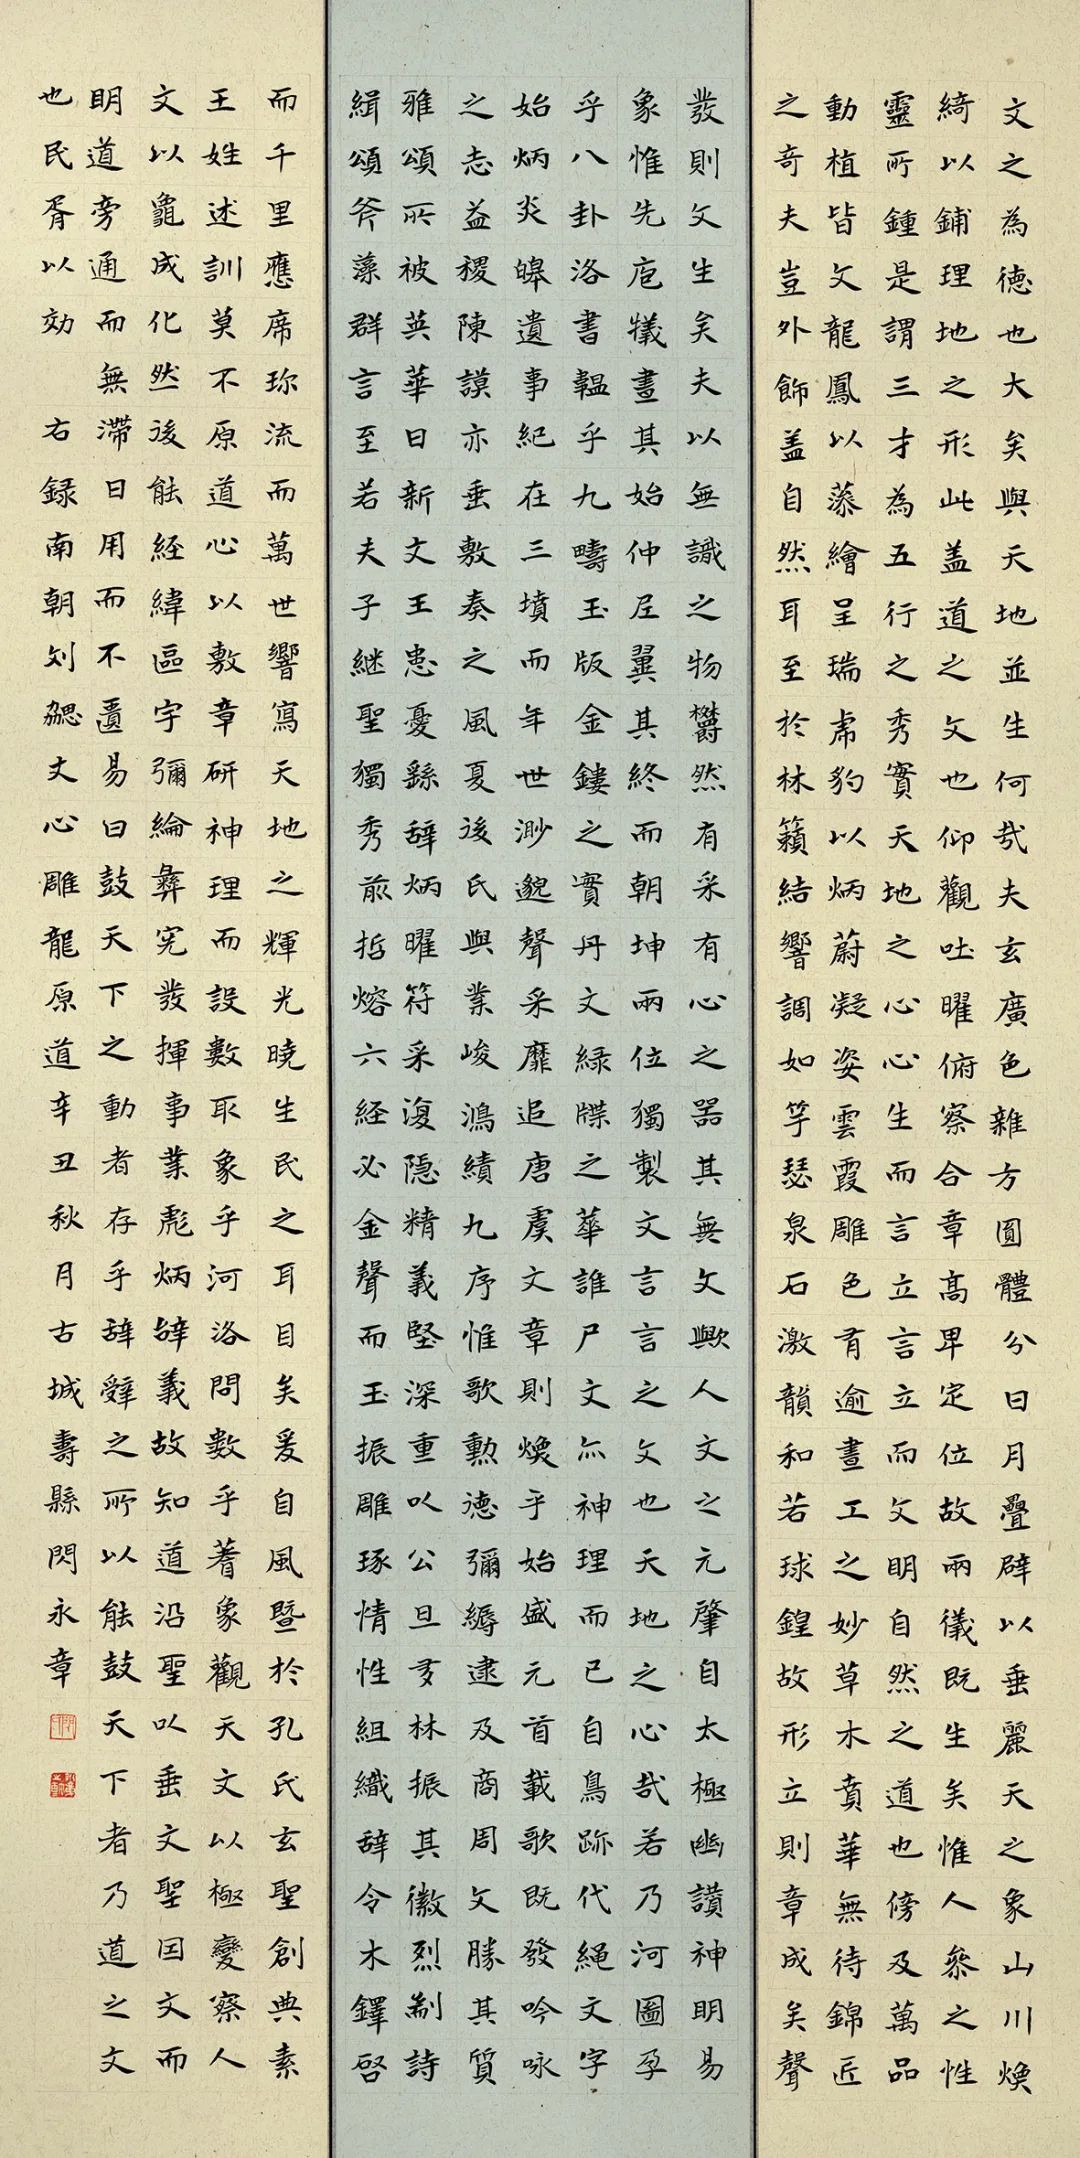 文之為德也大矣與天地並生何㢤夫玄廣色雜方圓體分日月疊辟以垂麗天之象山川煥
綺以鋪理地之形此盖道之文也仰觀吐曜俯察合章高卑定位故兩儀既生矣惟人叅之性
靈所鍾是謂三才為五行之秀實天地之心心生而言立言立而文明自然之道也傍及萬品
動植皆文龍鳳以藻繪呈瑞虎豹以炳蔚凝姿雲霞雕色有逾畫工之妙草木賁華無待錦匠
之奇夫豈外飾盖自然耳至於林籟結響調如竽瑟泉石激韻和若球鍠故形立則章成矣聲
發則文生矣夫以無識之物欝然有采有心之器其無文歟人文之元肇自太極幽讃神明易
象惟先庖犧畫其始仲尼翼其終而朝坤兩位獨製文言言之文也天地之心㢤若乃河圖孕
乎八卦洛書韞乎九疇玉版金鏤之實丹文緑牒之華誰尸文亦神理而已自鳥跡代繩文字
始炳炎皞遺事紀在三墳而年世渺邈聲采靡追唐虞文章則煥乎始盛元首載歌既發吟咏
之志益稷陳謨亦垂敷奏之風夏後氏與業峻鴻績九序惟歌勲德彌縟逮及商周文勝其質
雅頌所被英華日新文王患憂繇辞炳曜符采复隠精義堅深重以公旦多林振其徽烈剬詩
緝頌斧藻群言至若夫子継聖獨秀前哲熔六経必金聲而玉振雕琢情性組織辞令木鐸啓
而千里應席珎流而萬世響寫天地之輝光曉生民之耳目矣爰自風暨於孔氏玄聖創典素
王姓述訓莫不原道心以敷章研神理而設數取象乎河洛問數乎蓍象觀天文以極變察人
文以龜成化然後能経緯區宇彌綸彝宪發揮事業彪炳辞義故知道沿聖以垂文聖因文而
明道旁通而無滯日用而不匱易曰鼓天下之動者存乎辞辭之所以能鼓天下者乃道之文
也民胥以効 右録南朝刘勰文心雕龍原道辛丑秋月古城壽縣閃永章